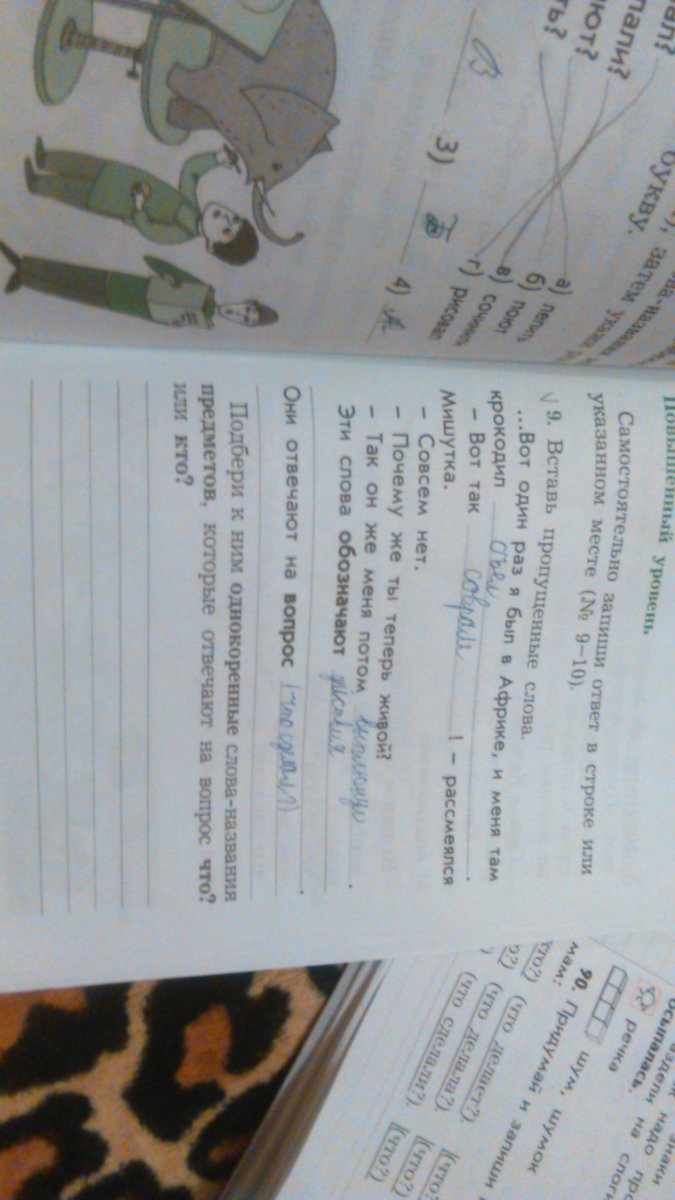 ап?
пали?
ют?
ть?
букву.
затем
а) лепить
б) поют
в) сочинить
г) рисовал
В
3) Б
4) А
Повышенный уровень
Самостоятельно запиши ответ в строке или
указанном месте (№ 9–10).
√ 9. Вставь пропущенные слова.
...Вот один раз я был в Африке, и меня там
крокодил съел.
– Вот так соврал! – рассмеялся
Мишутка.
– Совсем нет.
– Почему же ты теперь живой?
– Так он же меня потом выплюнул.
Эти слова обозначают
Они отвечают на вопрос (что сделал?).
Подбери к ним однокоренные слова-названия
предметов, которые отвечают на вопрос что?
или кто?
осыпалась.
речка
90. Придумай и запиши
шум, шумок
мам:
(что делает?)
(что делала?)
(что сделали?)
[что?]
[что?]